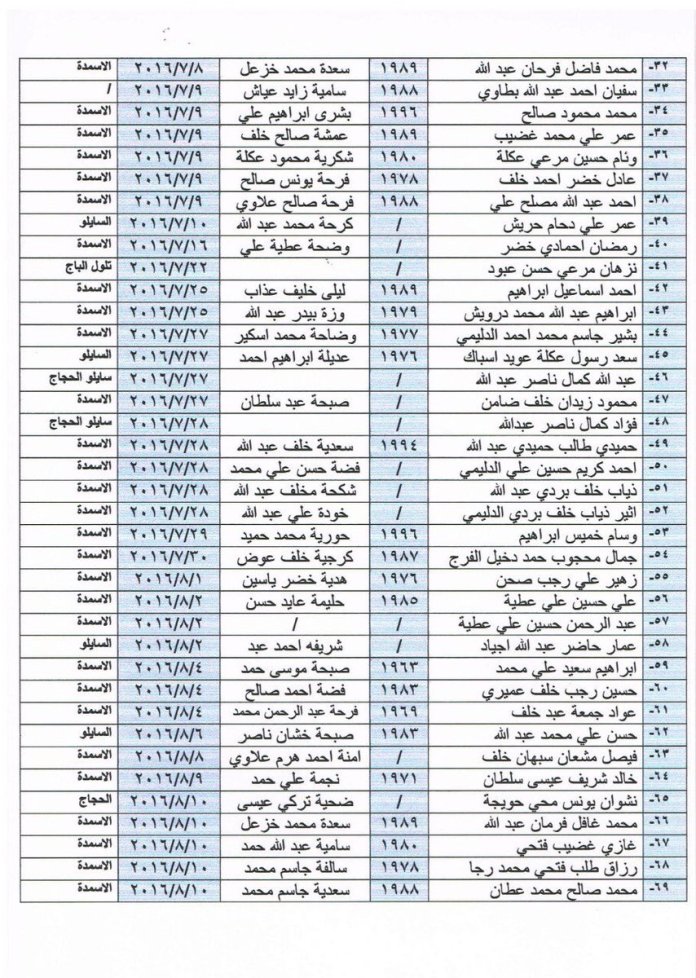 ٣٢- محمد فاضل فرحان عبد الله ١٩٨٩ سعدة محمد خزعل ٢٠١٦/٧/٨ الاسمدة
٣٣- سفيان احمد عبد الله بطاوي ١٩٨٨ سامية زايد عياش ٢٠١٦/٧/٩ /
٣٤- محمد محمود صالح ١٩٩٦ بشرى ابراهيم علي ٢٠١٦/٧/٩ الاسمدة
٣٥- عمر علي محمد غضيب ١٩٨٩ عمشة صالح خلف ٢٠١٦/٧/٩ الاسمدة
٣٦- وئام حسين مرعي عكلة ١٩٨٠ شكرية محمود عكلة ٢٠١٦/٧/٩ الاسمدة
٣٧- عادل خضر احمد خلف ١٩٧٨ فرحة يونس صالح ٢٠١٦/٧/٩ الاسمدة
٣٨- احمد عبد الله مصلح علي ١٩٨٨ فرحة صالح علاوي ٢٠١٦/٧/٩ الاسمدة
٣٩- عمر علي دحام حريش / كرحة محمد عبد الله ٢٠١٦/٧/١٠ السايلو
٤٠- رمضان احمادي خضر / وضحة عطية علي ٢٠١٦/٧/١٦ الاسمدة
٤١- نزهان مرعي حسن عبود / ٢٠١٦/٧/٢٢ تلول الباج
٤٢- احمد اسماعيل ابراهيم ١٩٨٩ ليلى خليف عذاب ٢٠١٦/٧/٢٥ الاسمدة
٤٣- ابراهيم عبد الله محمد درويش ١٩٧٩ وزة بيدر عبد الله ٢٠١٦/٧/٢٥ الاسمدة
٤٤- بشير جاسم محمد احمد الدليمي ١٩٧٧ وضاحة محمد اسكير ٢٠١٦/٧/٢٧ الاسمدة
٤٥- سعد رسول عكلة عويد اسباك ١٩٧٦ عديلة ابراهيم احمد ٢٠١٦/٧/٢٧ السايلو
٤٦- عبد الله كمال ناصر عبد الله / ٢٠١٦/٧/٢٧ سايلو الحجاج
٤٧- محمود زيدان خلف ضامن / صبحة عبد سلطان ٢٠١٦/٧/٢٧ الاسمدة
٤٨- فؤاد كمال ناصر عبدالله / ٢٠١٦/٧/٢٨ سايلو الحجاج
٤٩- حميدي طالب حميدي عبد الله ١٩٩٤ سعدية خلف عبد الله ٢٠١٦/٧/٢٨ الاسمدة
٥٠- احمد كريم حسين علي الدليمي / فضة حسن علي محمد ٢٠١٦/٧/٢٨ الاسمدة
٥١- ذياب خلف بردي عبد الله / شكحة مخلف عبد الله ٢٠١٦/٧/٢٨ الاسمدة
٥٢- اثير ذياب خلف بردي الدليمي / خودة علي عبد الله ٢٠١٦/٧/٢٨ الاسمدة
٥٣- وسام خميس ابراهيم ١٩٩٦ حورية محمد حميد ٢٠١٦/٧/٢٩ الاسمدة
٥٤- جمال محجوب حمد دخيل الفرج ١٩٨٧ كرجية خلف عوض ٢٠١٦/٧/٣٠ الاسمدة
٥٥- زهير علي رجب صحن ١٩٧٦ هدية خضر ياسين ٢٠١٦/٨/١ الاسمدة
٥٦- علي حسين علي عطية ١٩٨٥ حليمة عايد حسن ٢٠١٦/٨/٢ الاسمدة
٥٧- عبد الرحمن حسين علي عطية / / ٢٠١٦/٨/٢ الاسمدة
٥٨- عمار حاضر عبد الله اجياد / شريفه احمد عبد ٢٠١٦/٨/٢ السايلو
٥٩- ابراهيم سعيد علي محمد ١٩٦٣ صبحة موسى حمد ٢٠١٦/٨/٤ الاسمدة
٦٠- حسين رجب خلف عميري ١٩٨٣ فضة احمد صالح ٢٠١٦/٨/٤ الاسمدة
٦١- عواد جمعة عبد خلف ١٩٦٩ فرحة عبد الرحمن محمد ٢٠١٦/٨/٤ الاسمدة
٦٢- حسن علي محمد عبد الله ١٩٨٣ صبحة خشان ناصر ٢٠١٦/٨/٦ السايلو
٦٣- فيصل مشعان سبهان خلف / امنة احمد هرم علاوي ٢٠١٦/٨/٨ الاسمدة
٦٤- خالد شريف عيسى سلطان ١٩٧١ نجمة علي حمد ٢٠١٦/٨/٩ الاسمدة
٦٥- نشوان يونس محي حويجة / ضحية تركي عيسى ٢٠١٦/٨/١٠ الحجاج
٦٦- محمد غافل فرمان عبد الله ١٩٨٩ سعدة محمد خزعل ٢٠١٦/٨/١٠ الاسمدة
٦٧- غازي غضيب فتحي ١٩٨٠ سامية عبد الله حمد ٢٠١٦/٨/١٠ الاسمدة
٦٨- رزاق طلب فتحي محمد رجا ١٩٧٨ سالفة جاسم محمد ٢٠١٦/٨/١٠ الاسمدة
٦٩- محمد صالح محمد عطان ١٩٨٨ سعدية جاسم محمد ٢٠١٦/٨/١٠ الاسمدة